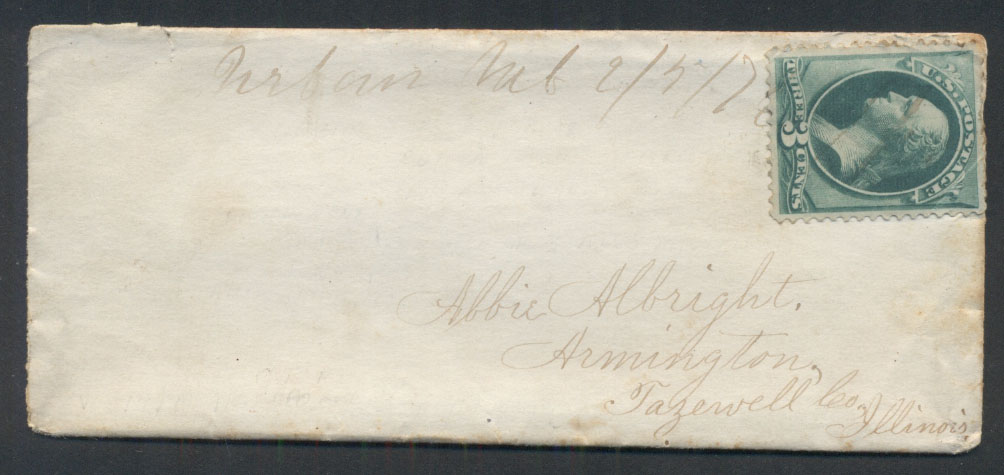 Urban Neb 2/5/7
U.S. POSTAGE
THREE 3 CENTS
Abbie Albright.
Armington,
Tazewell Co,
Illinois